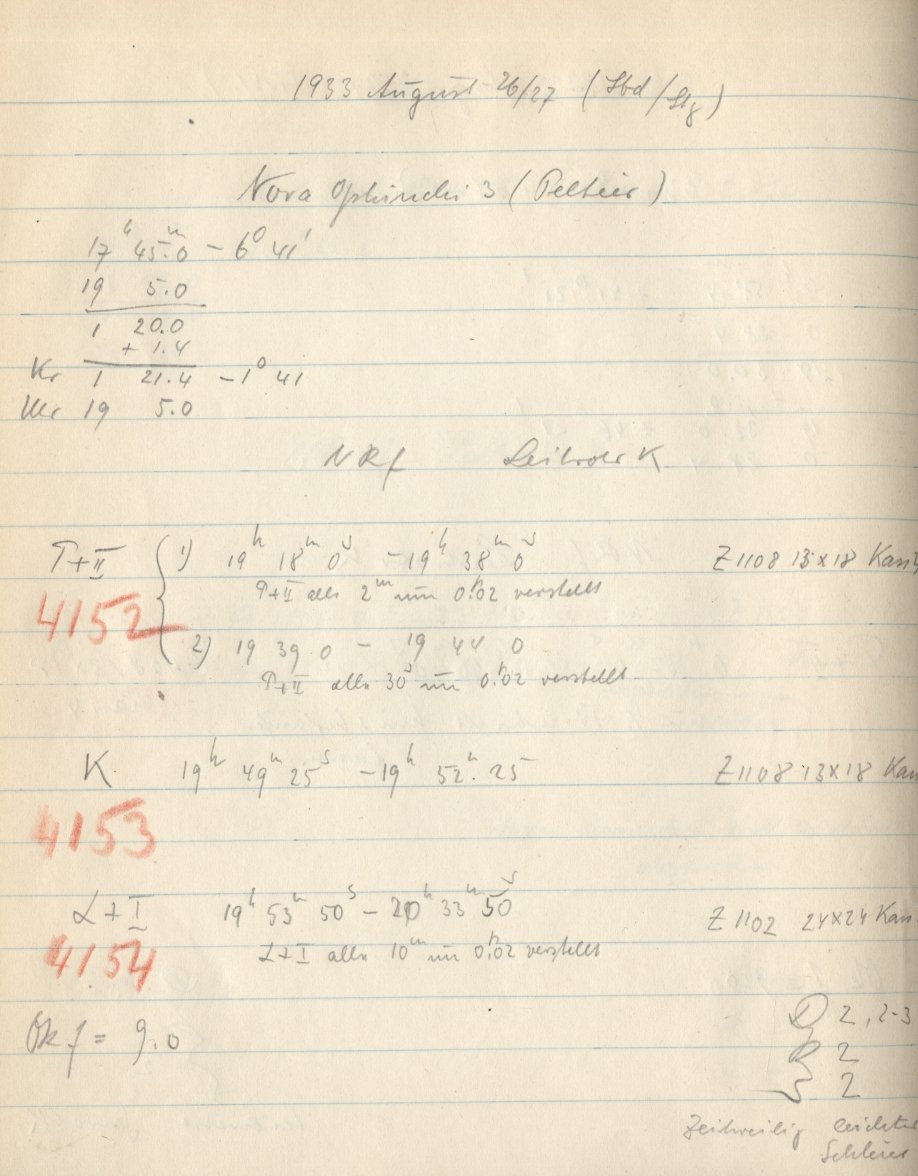 1933 August 26/27 (Sbd/Stg)
Nova Ophiuchi 3 (Peltier)
17ʰ 45ᵐ.0 – 6⁰ 41'
19 5.0
1 20.0
+ 1.4
Kr 1 21.4 – 1⁰ 41
Uhr 19 5.0
NRf Leitrohr K
T+II 1) 19ʰ 18ᵐ 0ˢ – 19ʰ 38ᵐ 0ˢ Z1108 13×18
T+II alle 2ᵐ um 0.02 verstellt
4152
2) 19 39 0 – 19 44 0
T+II alle 30ˢ um 0.02 verstellt
K 19ʰ 49ᵐ 25ˢ – 19ʰ 52ᵐ 25 Z1108 13×18
4153
L+I 19ʰ 53ᵐ 50ˢ – 20ʰ 33ᵐ 50ˢ Z1102 24×24
L+I alle 10ᵐ um 0.02 verstellt
4154
Ok f = 9.0
D 2, 2-3
R 2
S 2
Zeitweilig leichter
Schleier